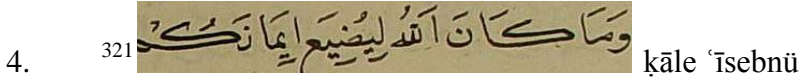 4. 321 وَمَا كَانَ اَللّٰهُ لِيُضِيعَ اِيمَانَكُمْ ḳāle ʿīsebnü